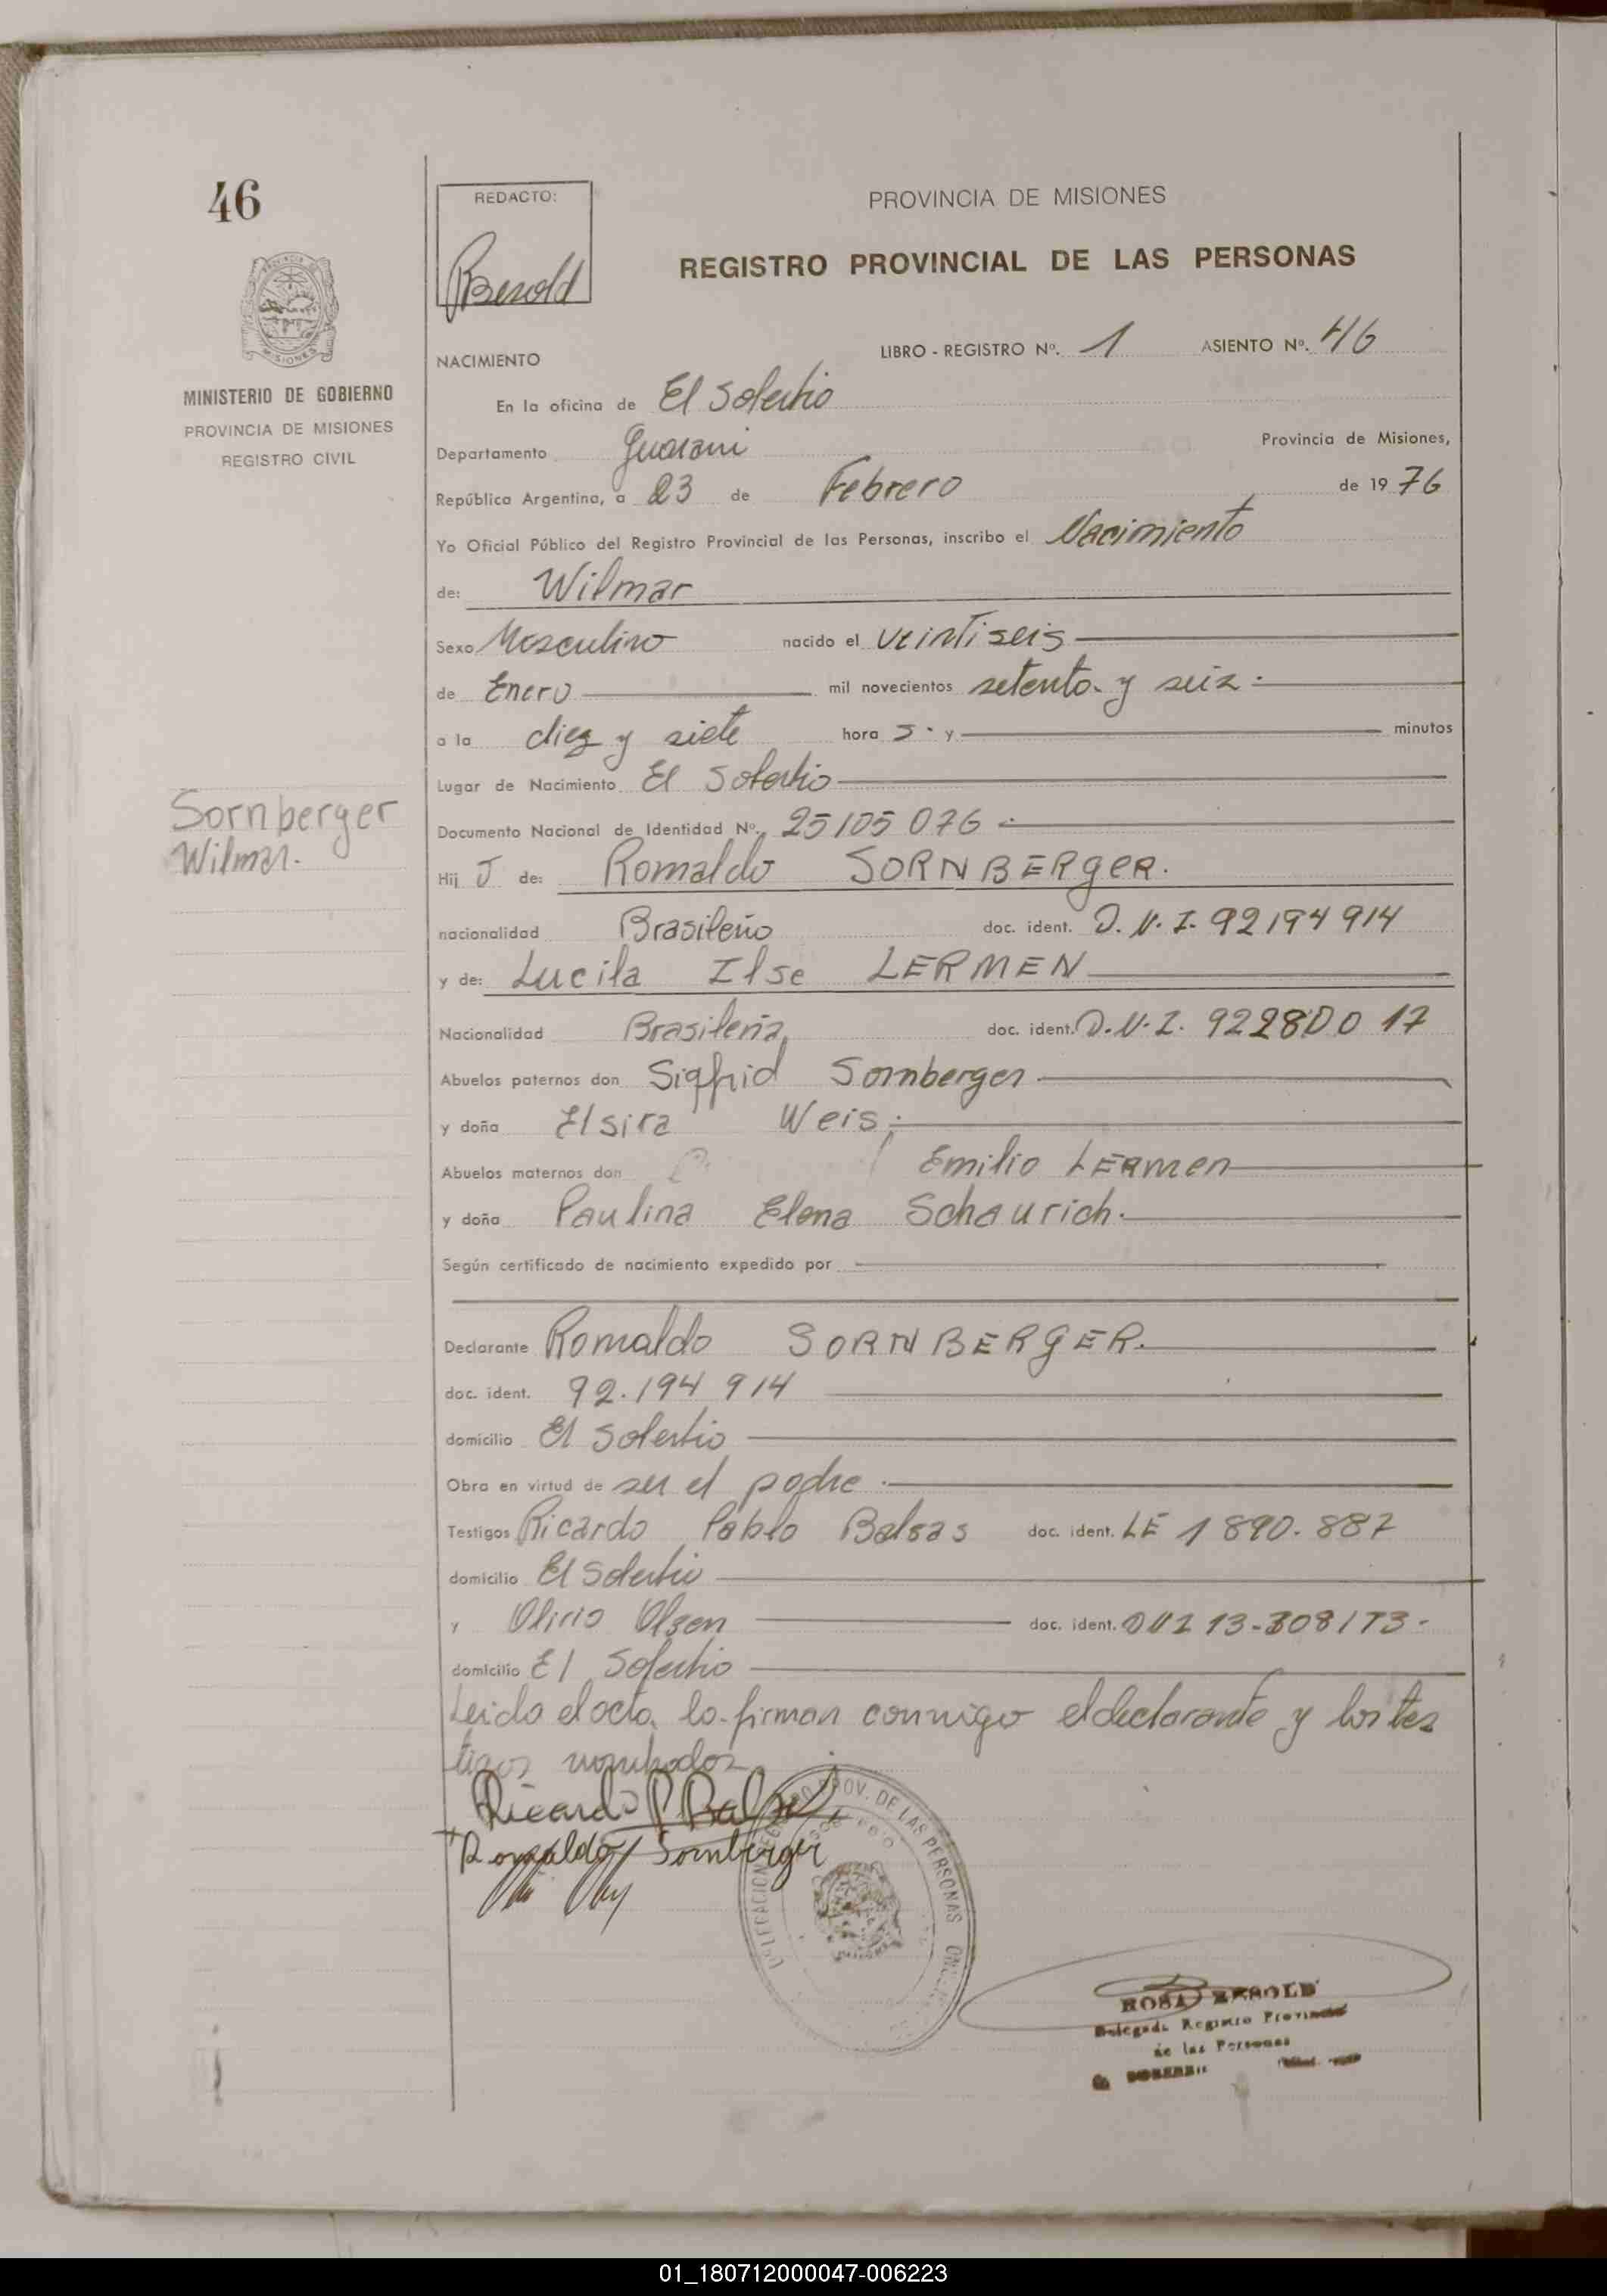 46
REDACTO:
PROVINCIA DE MISIONES
REGISTRO PROVINCIAL DE LAS PERSONAS
MINISTERIO DE GOBIERNO
PROVINCIA DE MISIONES
REGISTRO CIVIL
LIBRO - REGISTRO Nº. 1 ASIENTO Nº. 46
NACIMIENTO
En la oficina de El Soberbio
Departamento Guarani Provincia de Misiones,
República Argentina, a 23 de Febrero de 19 76
Yo Oficial Público del Registro Provincial de las Personas, inscribo el Nacimiento
de: Wilmar
Sexo Masculino nacido el veintiseis
de Enero mil novecientos setenta y seis.
a la diez y siete hora s. y minutos
Lugar de Nacimiento El Soberbio
Sornberger
Wilmar.
Documento Nacional de Identidad Nº. 25105 076
Hij o de: Romaldo SORNBERger.
nacionalidad Brasileño doc. ident. D.N.I. 92194 914
y de: Lucila Ilse LERMEN
Nacionalidad Brasileña doc. ident. D.N.I. 92280017
Abuelos paternos don Sigfrid Sornberger
y doña Elsira Weis.
Abuelos maternos don Emilio LERmen
y doña Paulina Elena Schaurich.
Según certificado de nacimiento expedido por
Declarante Romaldo SORNBERgER.
doc. ident. 92.194 914
domicilio El Soberbio
Obra en virtud de ser el padre.
Testigos Ricardo Pablo Balsas doc. ident. LE 1890.887
domicilio El Soberbio
y Olirio Olsen doc. ident. DNI 13-308173-
domicilio El Soberbio
Leida el acta, lo firman conmigo el declarante y los tes
tigos nombrados
Ricardo P. Balsas
Romaldo Sornberger
DELEGACION REGISTRO PROV. DE LAS PERSONAS
ROSA BESOLD
Delegada Registro Provincial
de las Personas
01_180712000047-006223